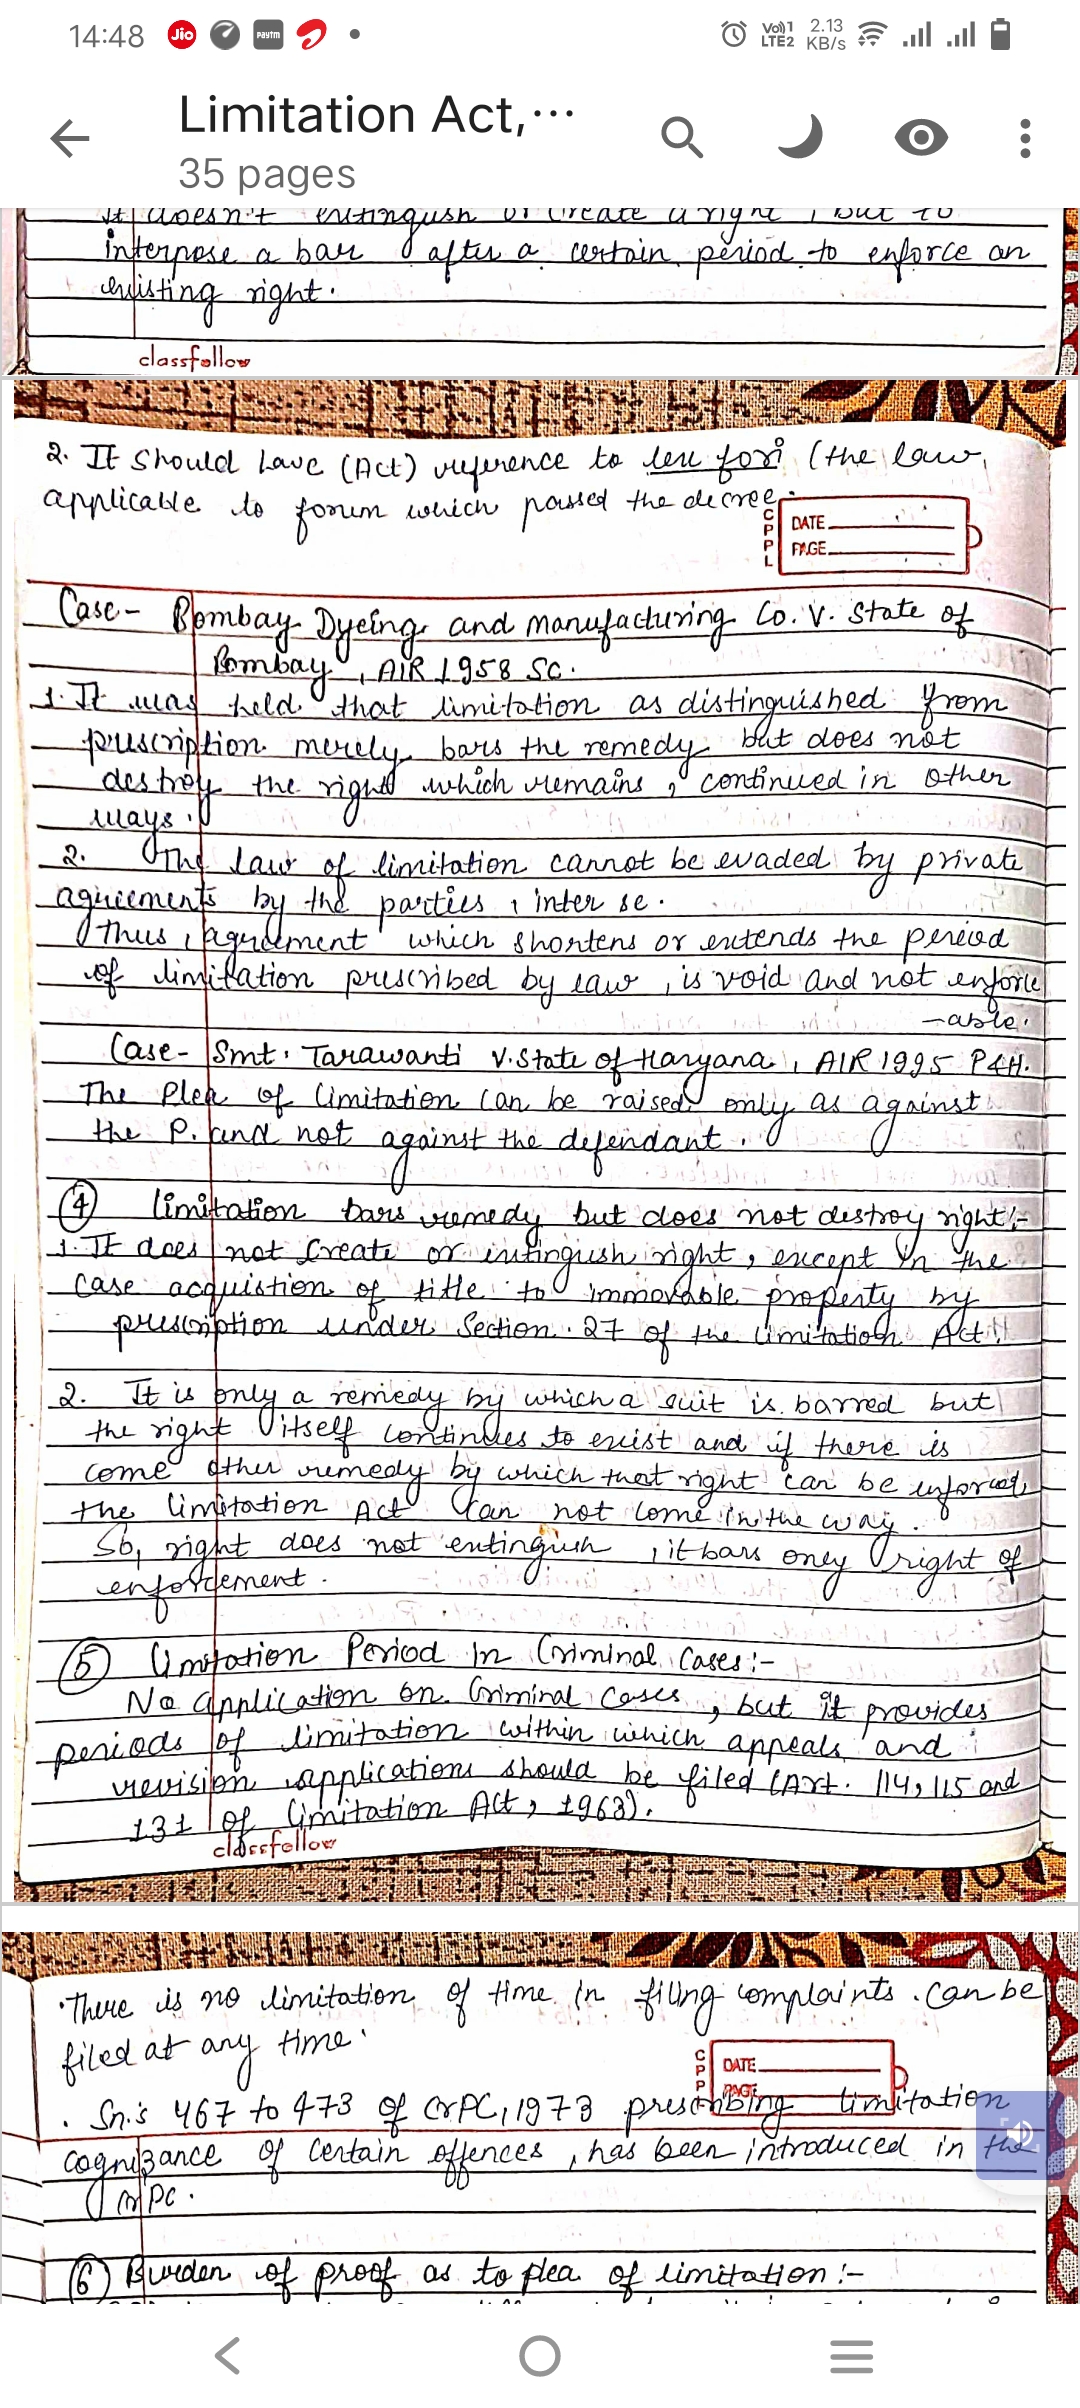 14:48 Jio Paytm Vo)) 1 LTE2 2.13 KB/s
Limitation Act,...
35 pages
It doesn't extinguish or create a right, but to
interpose a bar after a certain period to enforce an
existing right.
classfellow
2. It should have (Act) reference to lex fori (the law
applicable to forum which passed the decree.
CPPL DATE
PAGE
Case- Bombay Dyeing and Manufacturing Co. V. State of
Bombay, AIR 1958 SC.
1. It was held that limitation as distinguished from
prescription merely bars the remedy but does not
destroy the right which remains, continued in other
ways.
2. The law of limitation cannot be evaded by private
agreements by the parties, inter se.
Thus, agreement which shortens or extends the period
of limitation prescribed by law, is void and not enforce
-able.
Case- Smt. Tarawanti V. State of Haryana, AIR 1995 P&H.
The Plea of limitation can be raised only as against
the P. and not against the defendant.
4 limitation bars remedy but does not destroy right:-
1. It does not create or extinguish right, except in the
case acquistion of title to immovable property by
prescription under Section. 27 of the limitation Act.
2. It is only a remedy by which a suit is barred but
the right itself continues to exist and if there is
come other remedy by which that right can be enforced,
the limitation Act can not come in the way.
So, right does not extinguish, it bars only right of
enforcement.
5 Limitation Period In Criminal Cases:-
No application on Criminal Cases, but it provides
periods of limitation within which appeals and
revision applications should be filed (Art. 114, 115 and
131 of Limitation Act, 1963).
classfellow
•There is no limitation of time in filing complaints. Can be
filed at any time.
CPP DATE
PAGE
. Sn.s 467 to 473 of CrPC, 1973 prescribing limitation
cognizance of certain offences, has been introduced in the
CrPC.
6 Burden of proof as to plea of limitation:-